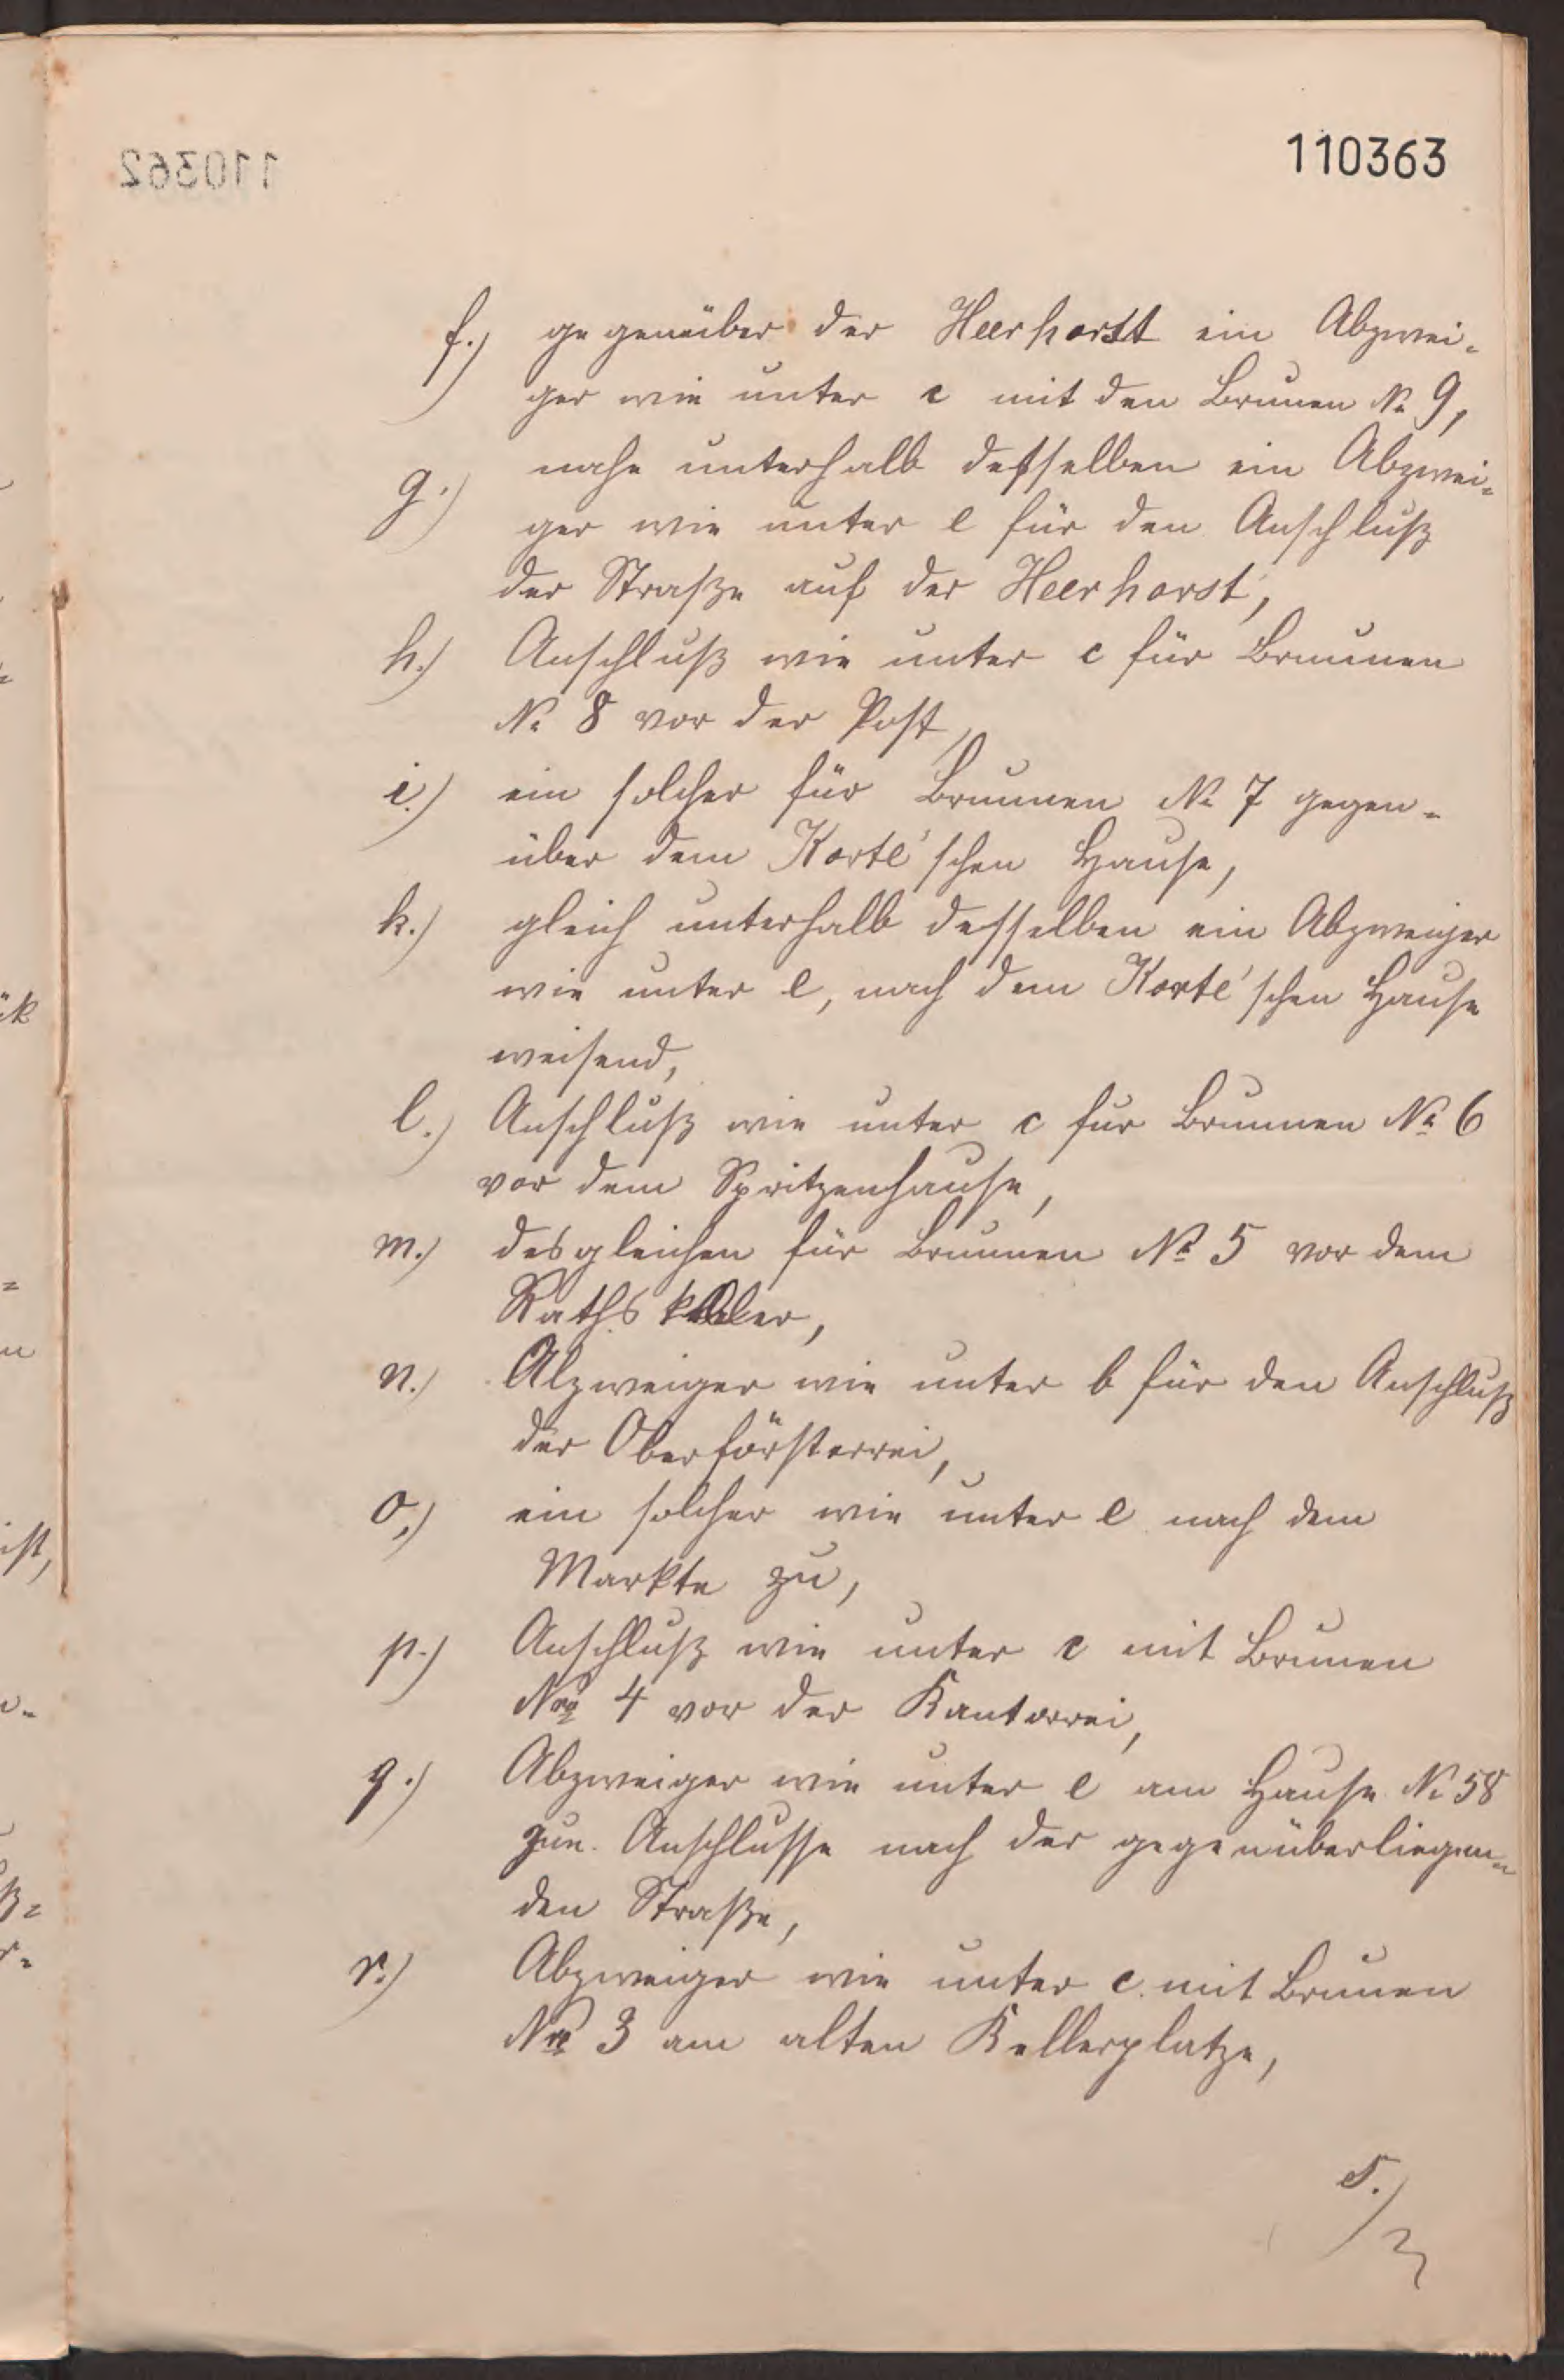 110363
f.) gegenüber der Heerhorst ein Abzwei-
ger wie unter c mit den Brunen No 9,
g.) nahe unterhalb desselben ein Abzwei-
ger wie unter e für den Anschluß
der Straße auf der Heerhorst,
h.) Anschluß wie unter c für Brunnen
No 8 vor der Post,
i.) ein solcher für Brunnen No 7 gegen-
über dem Korte'schen Hause,
k.) gleich unterhalb desselben ein Abzweiger
wie unter e, nach dem Korte'schen Hause
weisend,
l.) Anschluß wie unter c für Brunnen No 6
vor dem Spritzenhause,
m.) desgleichen für Brunnen No 5 vor dem
Rathskeller,
n.) Abzweiger wie unter b für den Anschluß
der Oberförsterrei,
o.) ein solcher wie unter e nach dem
Markte zu,
p.) Anschluß wie unter c mit Brunen
Nro 4 vor der Kantorrei,
q.) Abzweiger wie unter e am Hause No 58
zun. Anschlusse nach der gegenüberliegen-
den Straße,
r.) Abzweiger wie unter c. mit Brunen
Nro 3 am alten Kellerplatze,
s.)